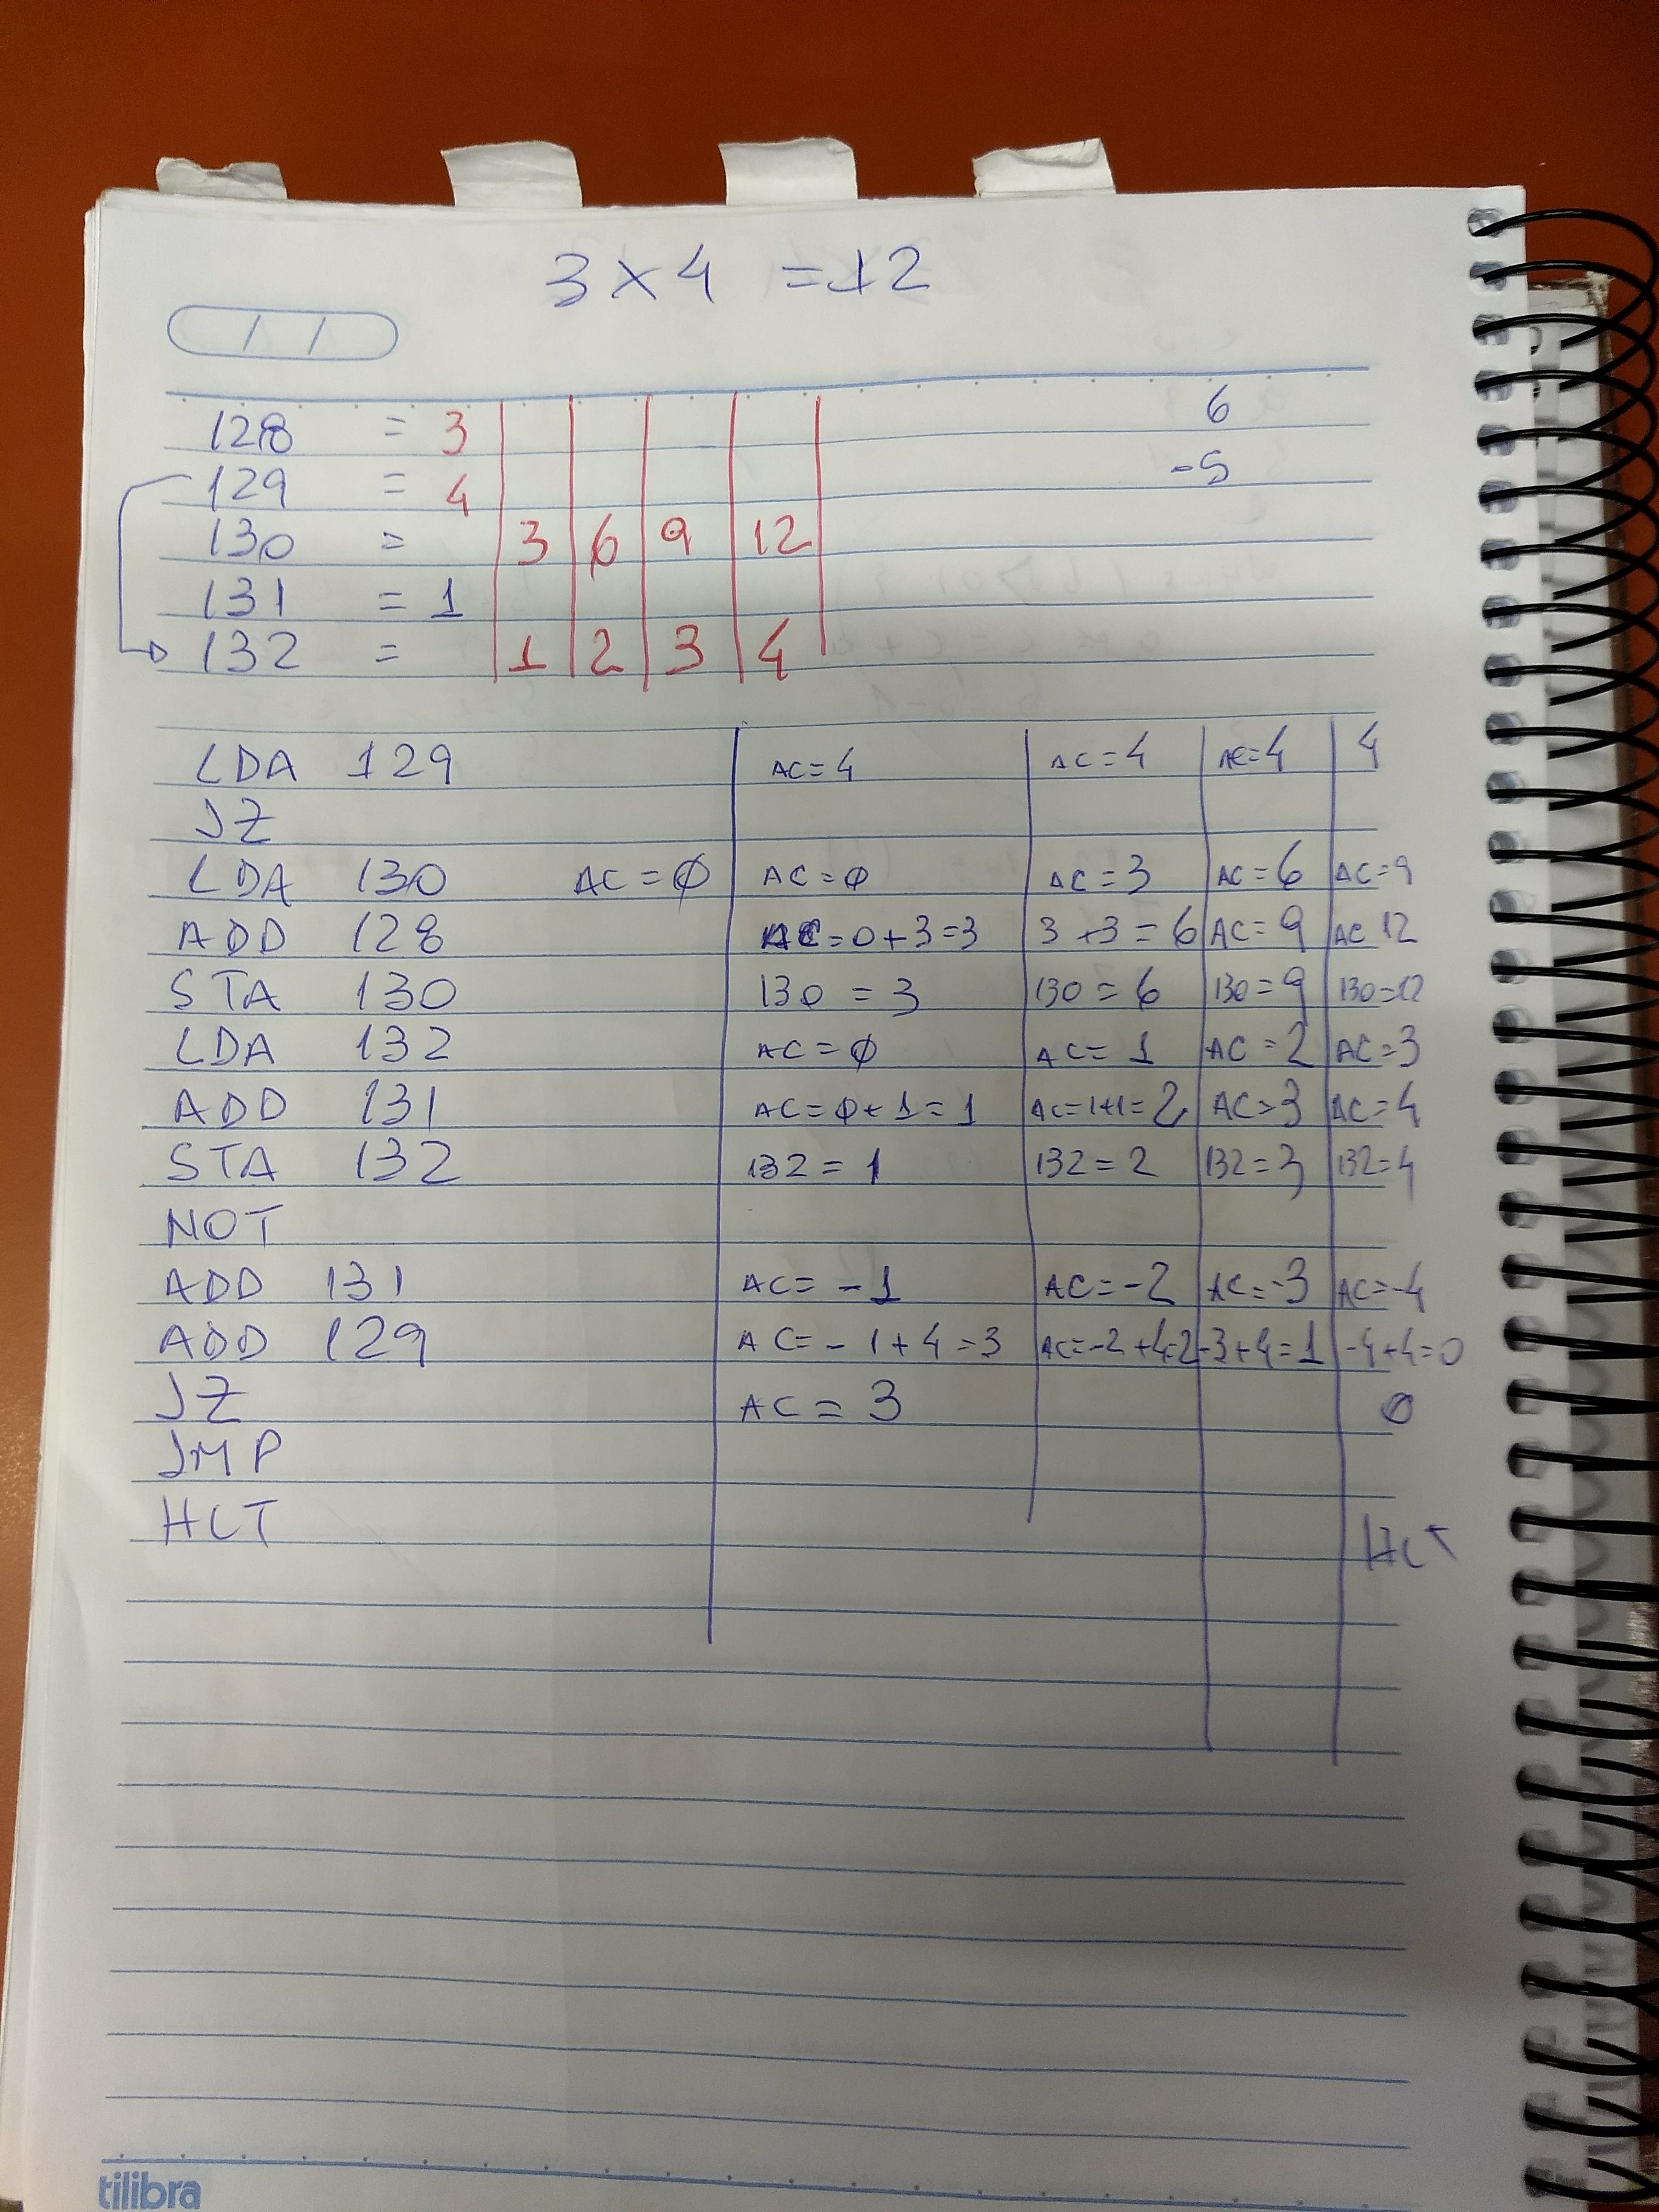 3 x 4 = 12
/ /
128 = 3 6
129 = 4 -5
130 = 3 6 9 12
131 = 1
132 = 1 2 3 4
LDA 129 AC=4 AC=4 AC=4 4
JZ
LDA 130 AC=∅ AC=∅ AC=3 AC=6 AC=9
ADD 128 AC=0+3=3 3+3=6 AC=9 AC 12
STA 130 130=3 130=6 130=9 130=12
LDA 132 AC=∅ AC=1 AC=2 AC=3
ADD 131 AC=∅+1=1 AC=1+1=2 AC=3 AC=4
STA 132 132=1 132=2 132=3 132=4
NOT
ADD 131 AC=-1 AC=-2 AC=-3 AC=-4
ADD 129 AC=-1+4=3 AC=-2+4=2 -3+4=1 -4+4=0
JZ AC=3 0
JMP
HLT HLT
tilibra